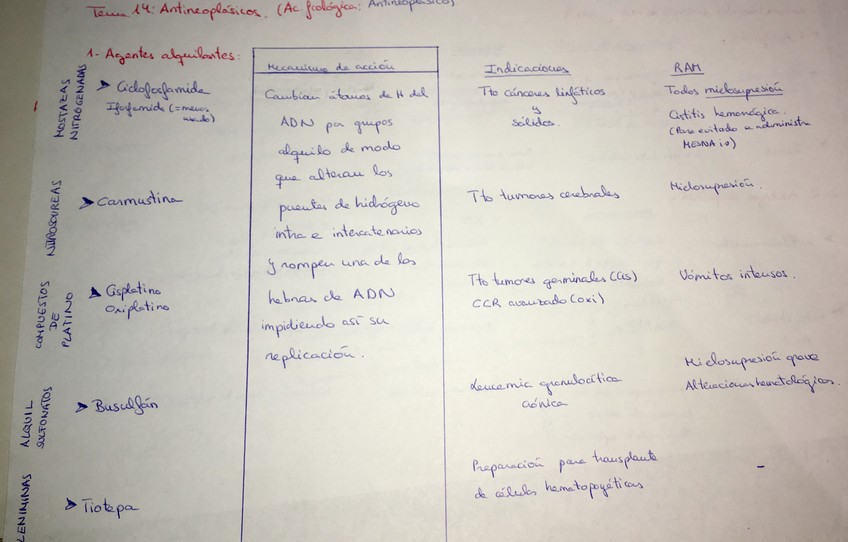 Tema 14: Antineoplásicos. (Ac. fcológica: Antineoplásico)
1- Agentes alquilantes:
Mecanismo de acción
Indicaciones
RAM
MOSTAZAS NITROGENADAS
➤ Ciclofosfamida
Ifosfamida (= menos usado)
Cambian átomos de H del
ADN por grupos
alquilo de modo
que alteran los
puentes de hidrógeno
intra e intercatenarios
y rompen una de las
hebras de ADN
impidiendo así su
replicación.
Tto cánceres linfáticos
y
sólidos.
Todos mielosupresión
Cistitis hemorrágica.
(Para evitarlo se administra
MESNA iv)
NITROSOUREAS
➤ Carmustina
Tto tumores cerebrales
Mielosupresión.
COMPUESTOS DE PLATINO
➤ Cisplatino
Oxiplatino
Tto tumores germinales (Cis)
CCR avanzado (oxi)
Vómitos intensos.
ALQUIL SULFONATOS
➤ Busulfán
Leucemia granulocítica
crónica
Mielosupresión grave
Alteraciones hematológicas.
➤ Tiotepa
Preparación para transplante
de células hematopoyéticas
-